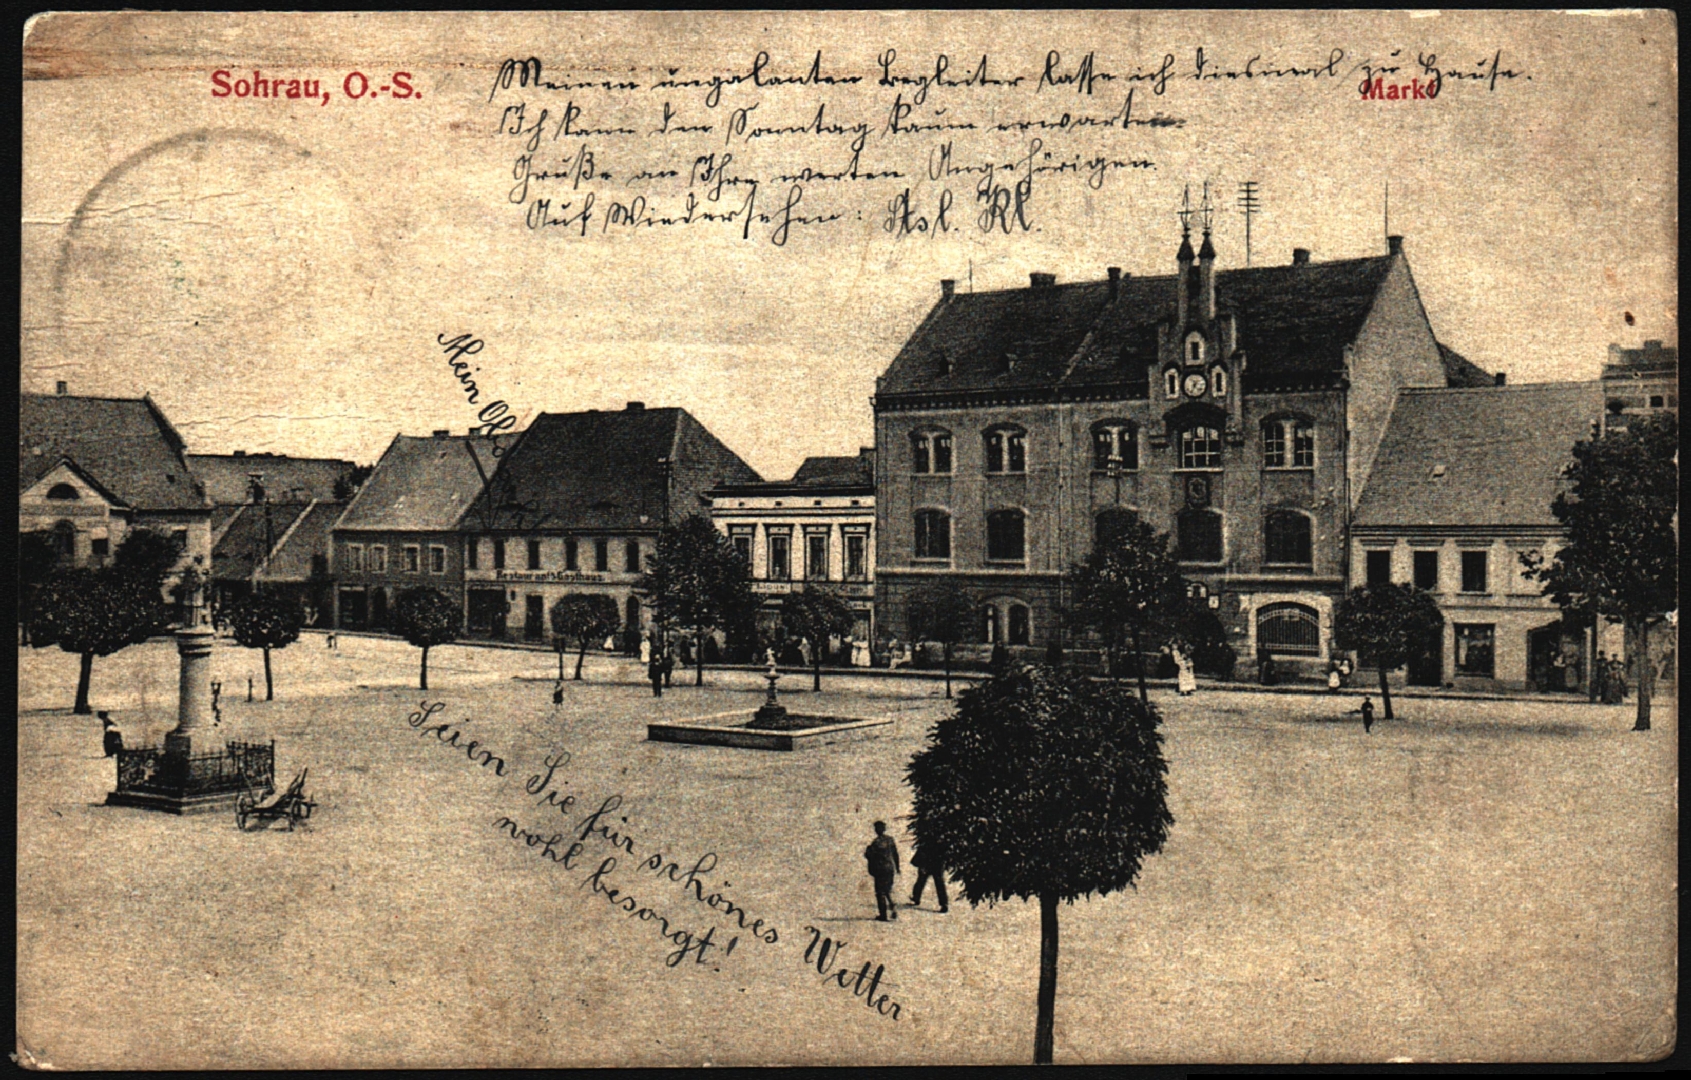 Sohrau, O.-S.
Markt
Meinen ungalanten Begleiter lasse ich diesmal zu Hause.
Ich kann den Sonntag kaum erwarten.
Grüße an Ihre werten Angehörigen.
Auf Wiedersehen: Kl.
Mein
Restaurant Gasthaus
Seien Sie für schönes Wetter
wohl besorgt!